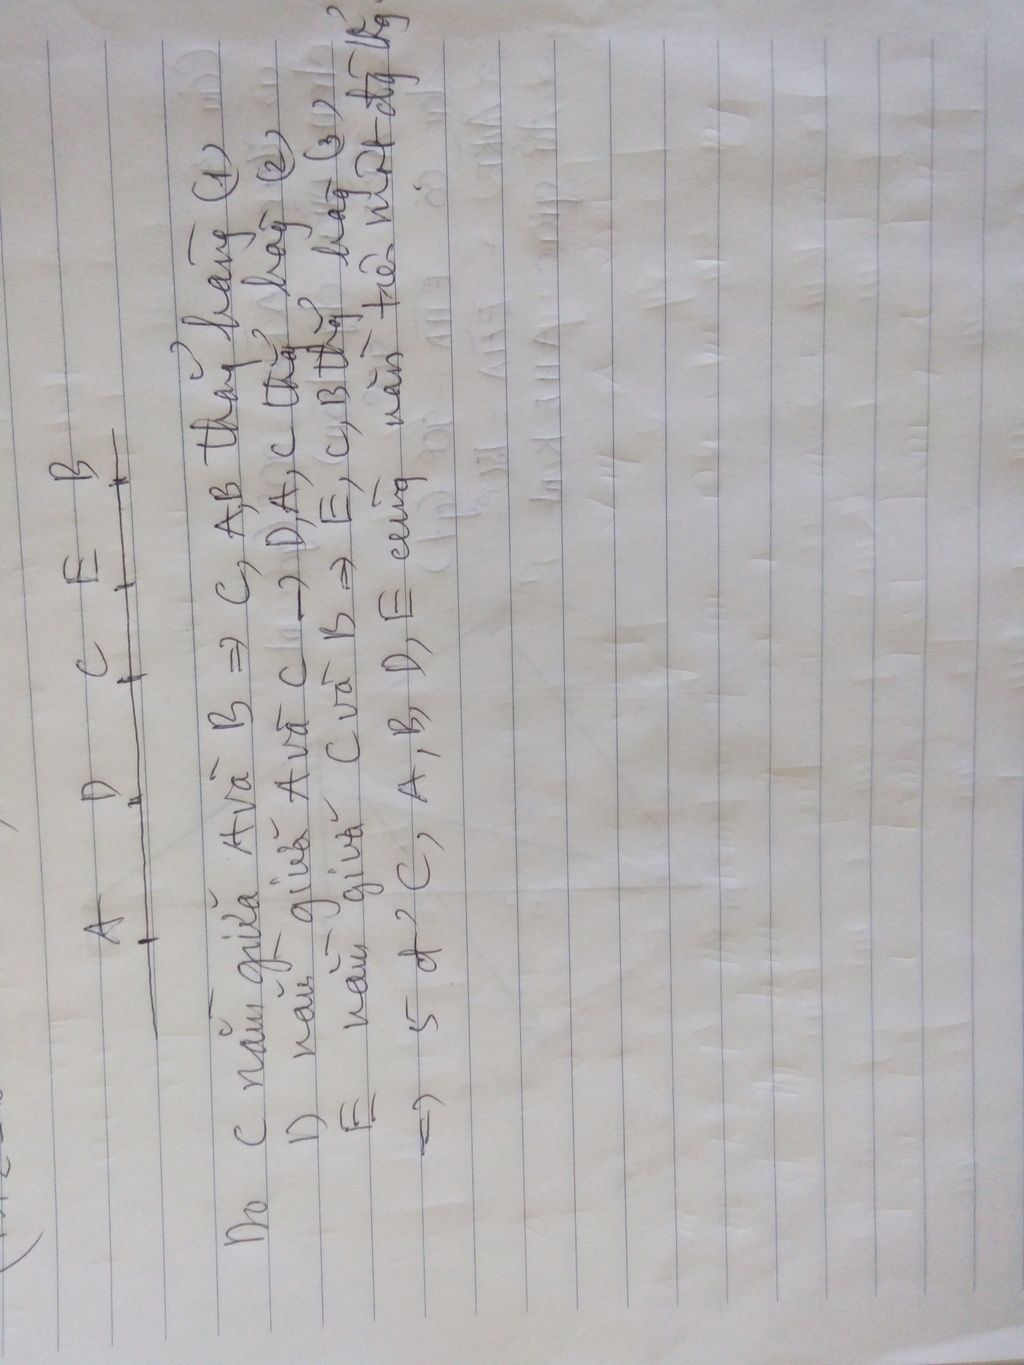 A D C E B
Do C nằm giữa A và B => C, A, B thẳng hàng (1)
D nằm giữa A và C → D, A, C thẳg hàg (2)
E nằm giữa C và B => E, C, B thẳg hàg (3)
=> 5 đ' C, A, B, D, E cùng nằm trên một đg thẳg